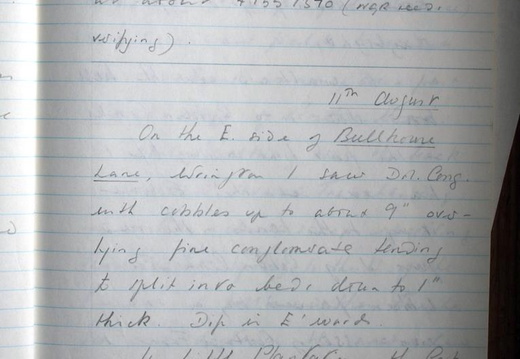 at about 4755 1570 (NGR need
verifying).
11TH August
On the E. side of Bullhouse
Lane, Wrington I saw Dol. Cong.
with cobbles up to about 9" over-
lying fine conglomerate tending
to split into beds down to 1"
thick. Dip is E'wards